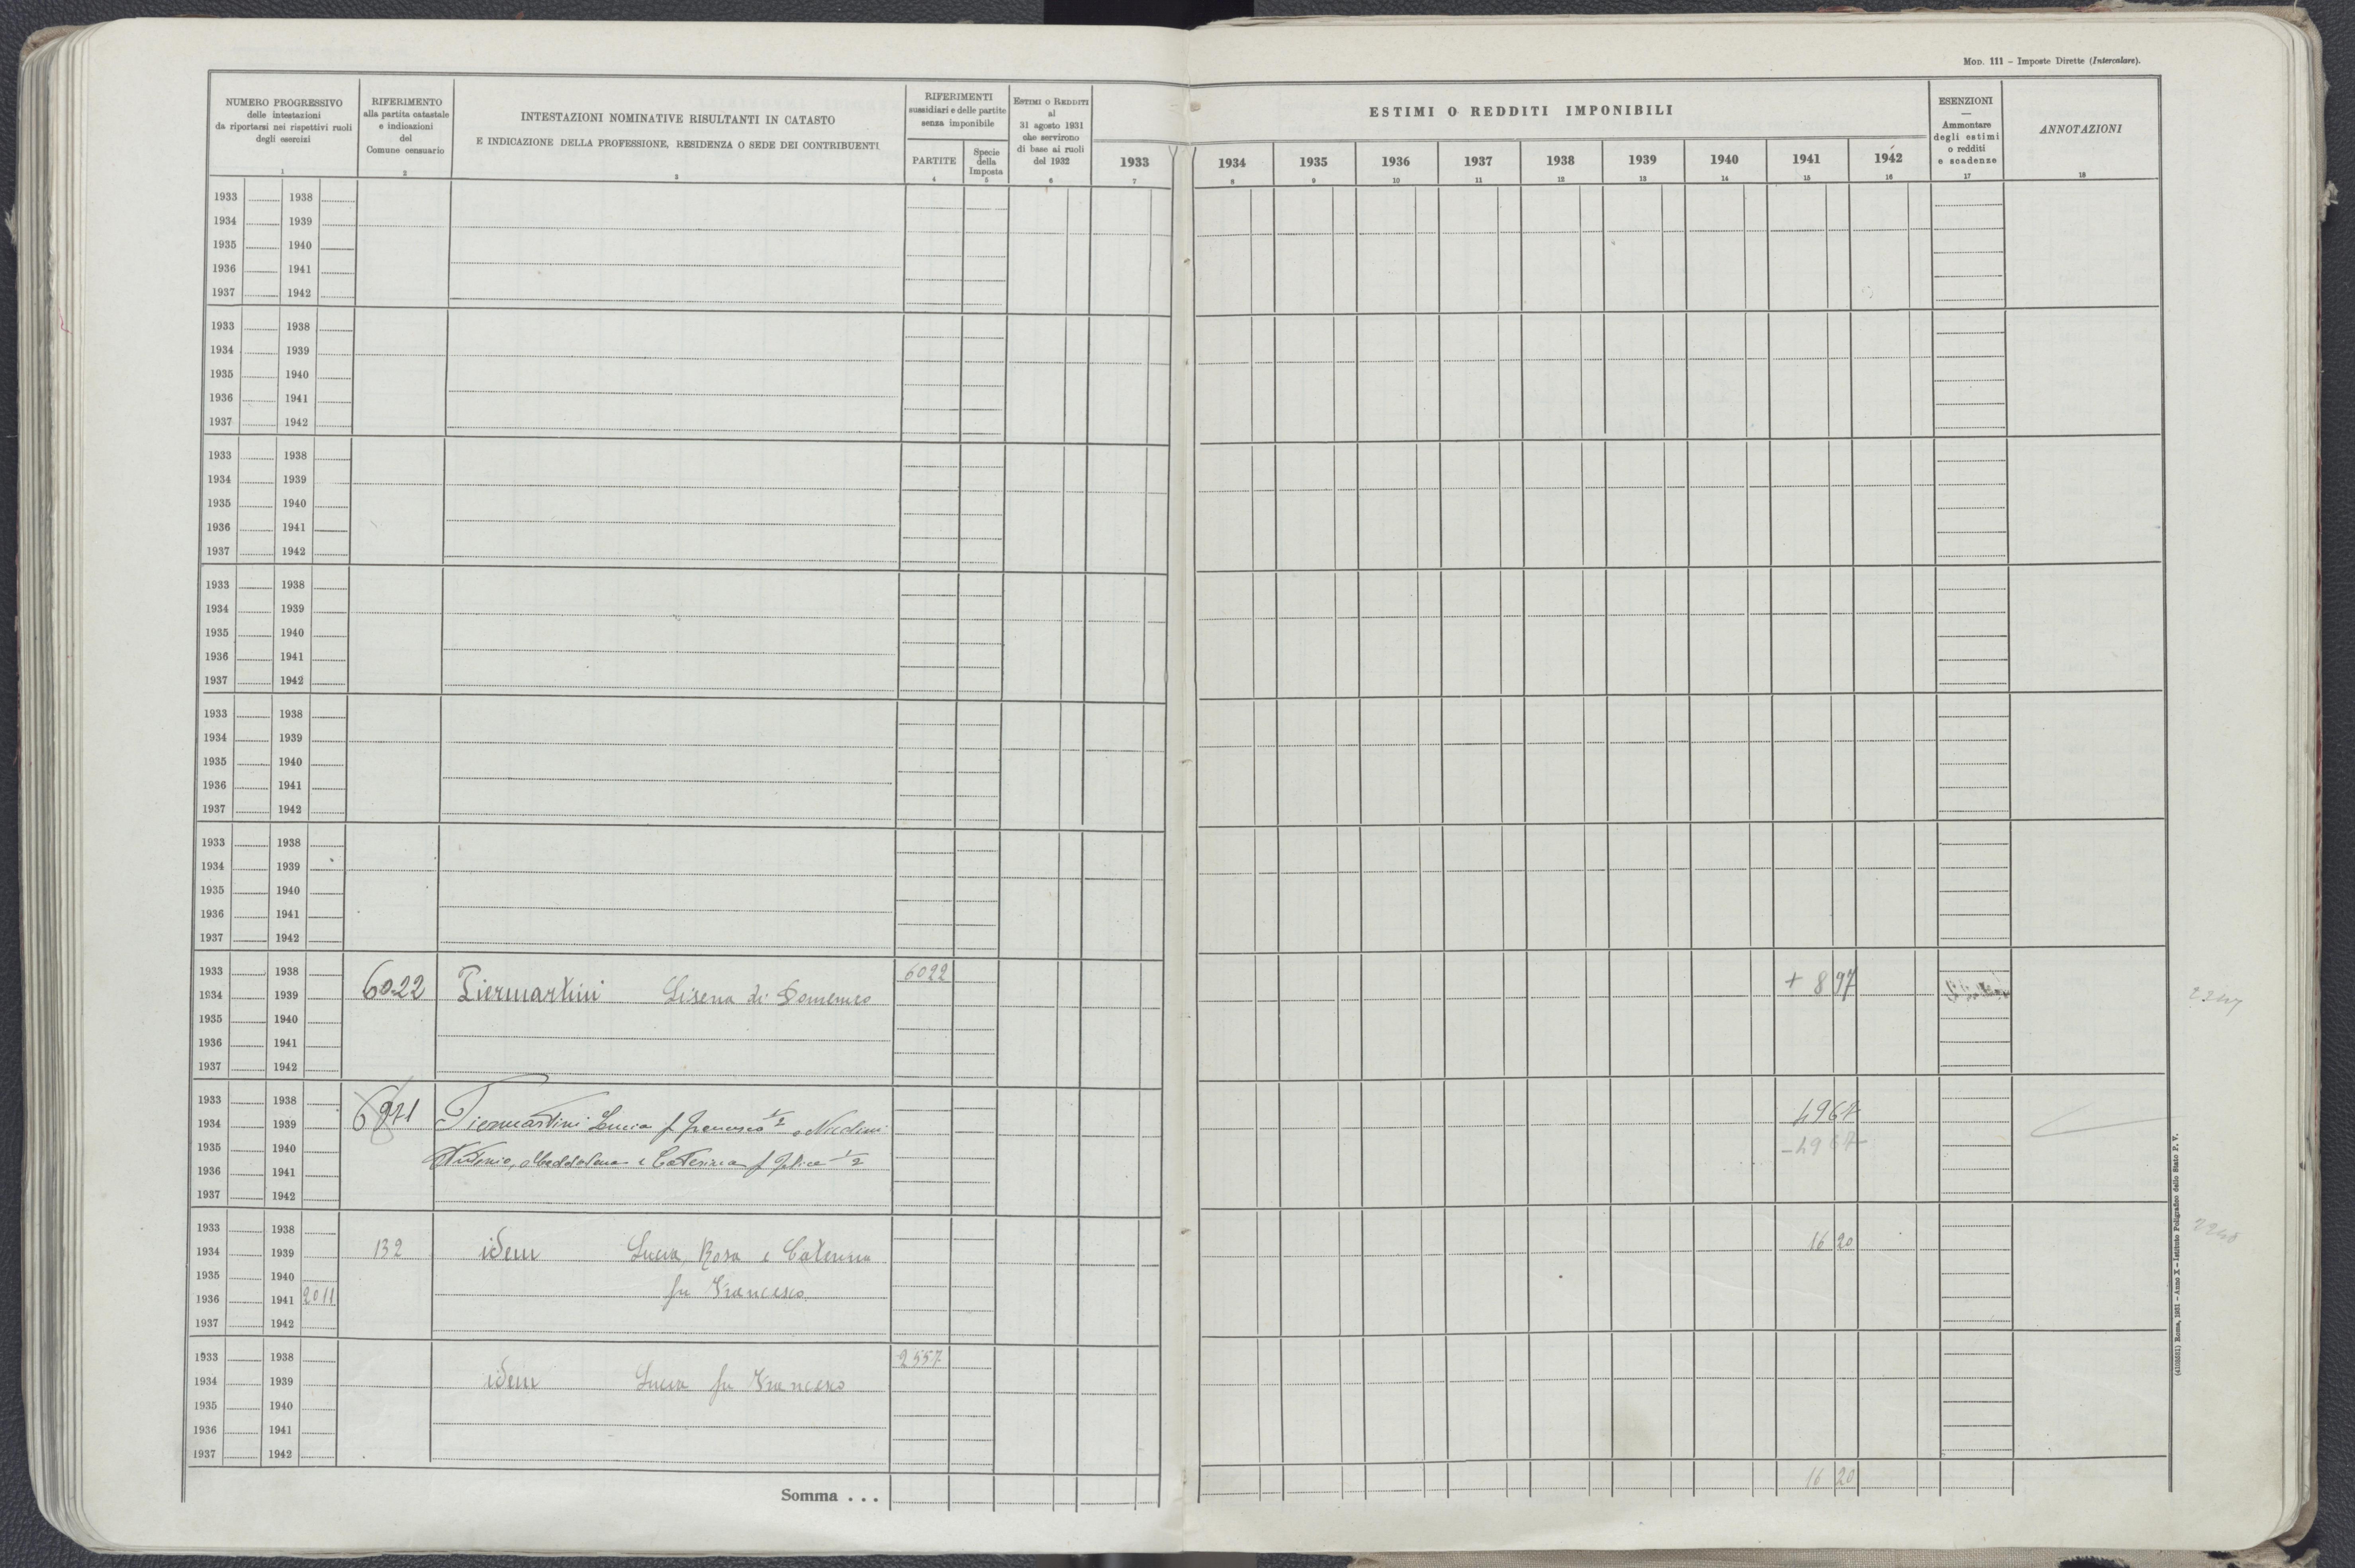 Mod. 111 – Imposte Dirette (Intercalare).
NUMERO PROGRESSIVO
delle intestazioni
da riportarsi nei rispettivi ruoli
degli esercizi
1
RIFERIMENTO
alla partita catastale
e indicazioni
del
Comune censuario
2
INTESTAZIONI NOMINATIVE RISULTANTI IN CATASTO
E INDICAZIONE DELLA PROFESSIONE, RESIDENZA O SEDE DEI CONTRIBUENTI
3
RIFERIMENTI
sussidiari e delle partite
senza imponibile
PARTITE
4
Specie
della
Imposta
5
Estimi o Redditi
al
31 agosto 1931
che servirono
di base ai ruoli
del 1932
6
ESTIMI O REDDITI IMPONIBILI
1933 1934 1935 1936 1937 1938 1939 1940 1941 1942
7 8 9 10 11 12 13 14 15 16
ESENZIONI
—
Ammontare
degli estimi
o redditi
e scadenze
17
ANNOTAZIONI
18
1933 1938
1934 1939
1935 1940
1936 1941
1937 1942
1933 1938
1934 1939
1935 1940
1936 1941
1937 1942
1933 1938
1934 1939
1935 1940
1936 1941
1937 1942
1933 1938
1934 1939
1935 1940
1936 1941
1937 1942
1933 1938
1934 1939
1935 1940
1936 1941
1937 1942
1933 1938
1934 1939
1935 1940
1936 1941
1937 1942
1933 1938 6022
1934 1939 6022 Piermartini Lisena di Domenico + 8 97
1935 1940
1936 1941
1937 1942
1933 1938
1934 1939 Piermartini Lucia f Francesco 1/2 e Nadini 4967
1935 1940 Antonio, Maddalena e Caterina f Felice 1/2 – 4967
1936 1941
1937 1942
1933 1938
1934 1939 132 idem Lucia, Rosa e Caterina 16 20
1935 1940
1936 1941 2011 fu Francesco
1937 1942
1933 1938 2557
1934 1939 idem Lucia fu Francesco
1935 1940
1936 1941
1937 1942
Somma . . . 16 20
(4103581) Roma, 1931 – Anno X – Istituto Poligrafico dello Stato P. V.